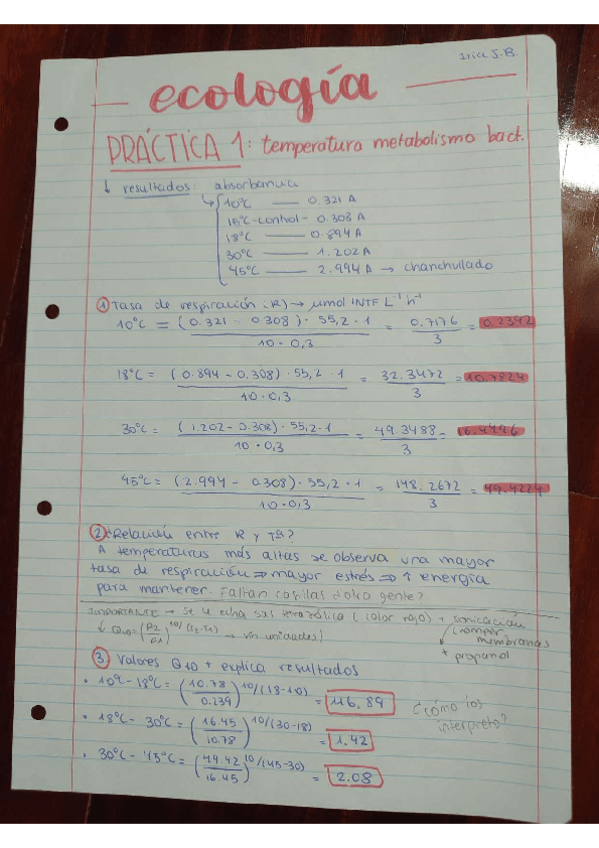 Irice J.B.
ecología
PRÁCTICA 1: temperatura metabolismo bact.
↓ resultados: absorbancia
↳ 10ºC — 0.321 A
15ºC-control - 0.308 A
18ºC — 0.894 A
30ºC — 1.202 A
45ºC — 2.994 A → chanchullado
① Tasa de respiración (R) → µmol INTF L⁻¹ h⁻¹
10ºC = (0.321 - 0.308) · 55,2 · 1 / 10 · 0,3 = 0.7176 / 3 = 0.2392
18ºC = (0.894 - 0.308) · 55,2 · 1 / 10 · 0,3 = 32.3472 / 3 = 10.7824
30ºC = (1.202 - 0.308) · 55,2 · 1 / 10 · 0,3 = 49.3488 / 3 = 16.4496
45ºC = (2.994 - 0.308) · 55,2 · 1 / 10 · 0,3 = 148.2672 / 3 = 49.4224
② ¿Relación entre R y Tª?
A temperaturas más altas se observa una mayor
tasa de respiración ⇒ mayor estrés ⇒ ↑ energía
para mantener. ¿Faltan cosillas d otra gente?
IMPORTANTE → se le echa sal tetrazólica (color rojo) + sonicación
↓ Q10 = (R2 / R1)^10/(t2-t1) → sin unidades!
(romper membranas
+ propanol
③ Valores Q10 + explica resultados
• 10º - 18ºC = (10.78 / 0.239)^10/(18-10) = 116,89
¿cómo los
interpreto?
• 18ºC - 30ºC = (16.45 / 10.78)^10/(30-18) = 1.42
• 30ºC - 45ºC = (49.42 / 16.45)^10/(45-30) = 2.08